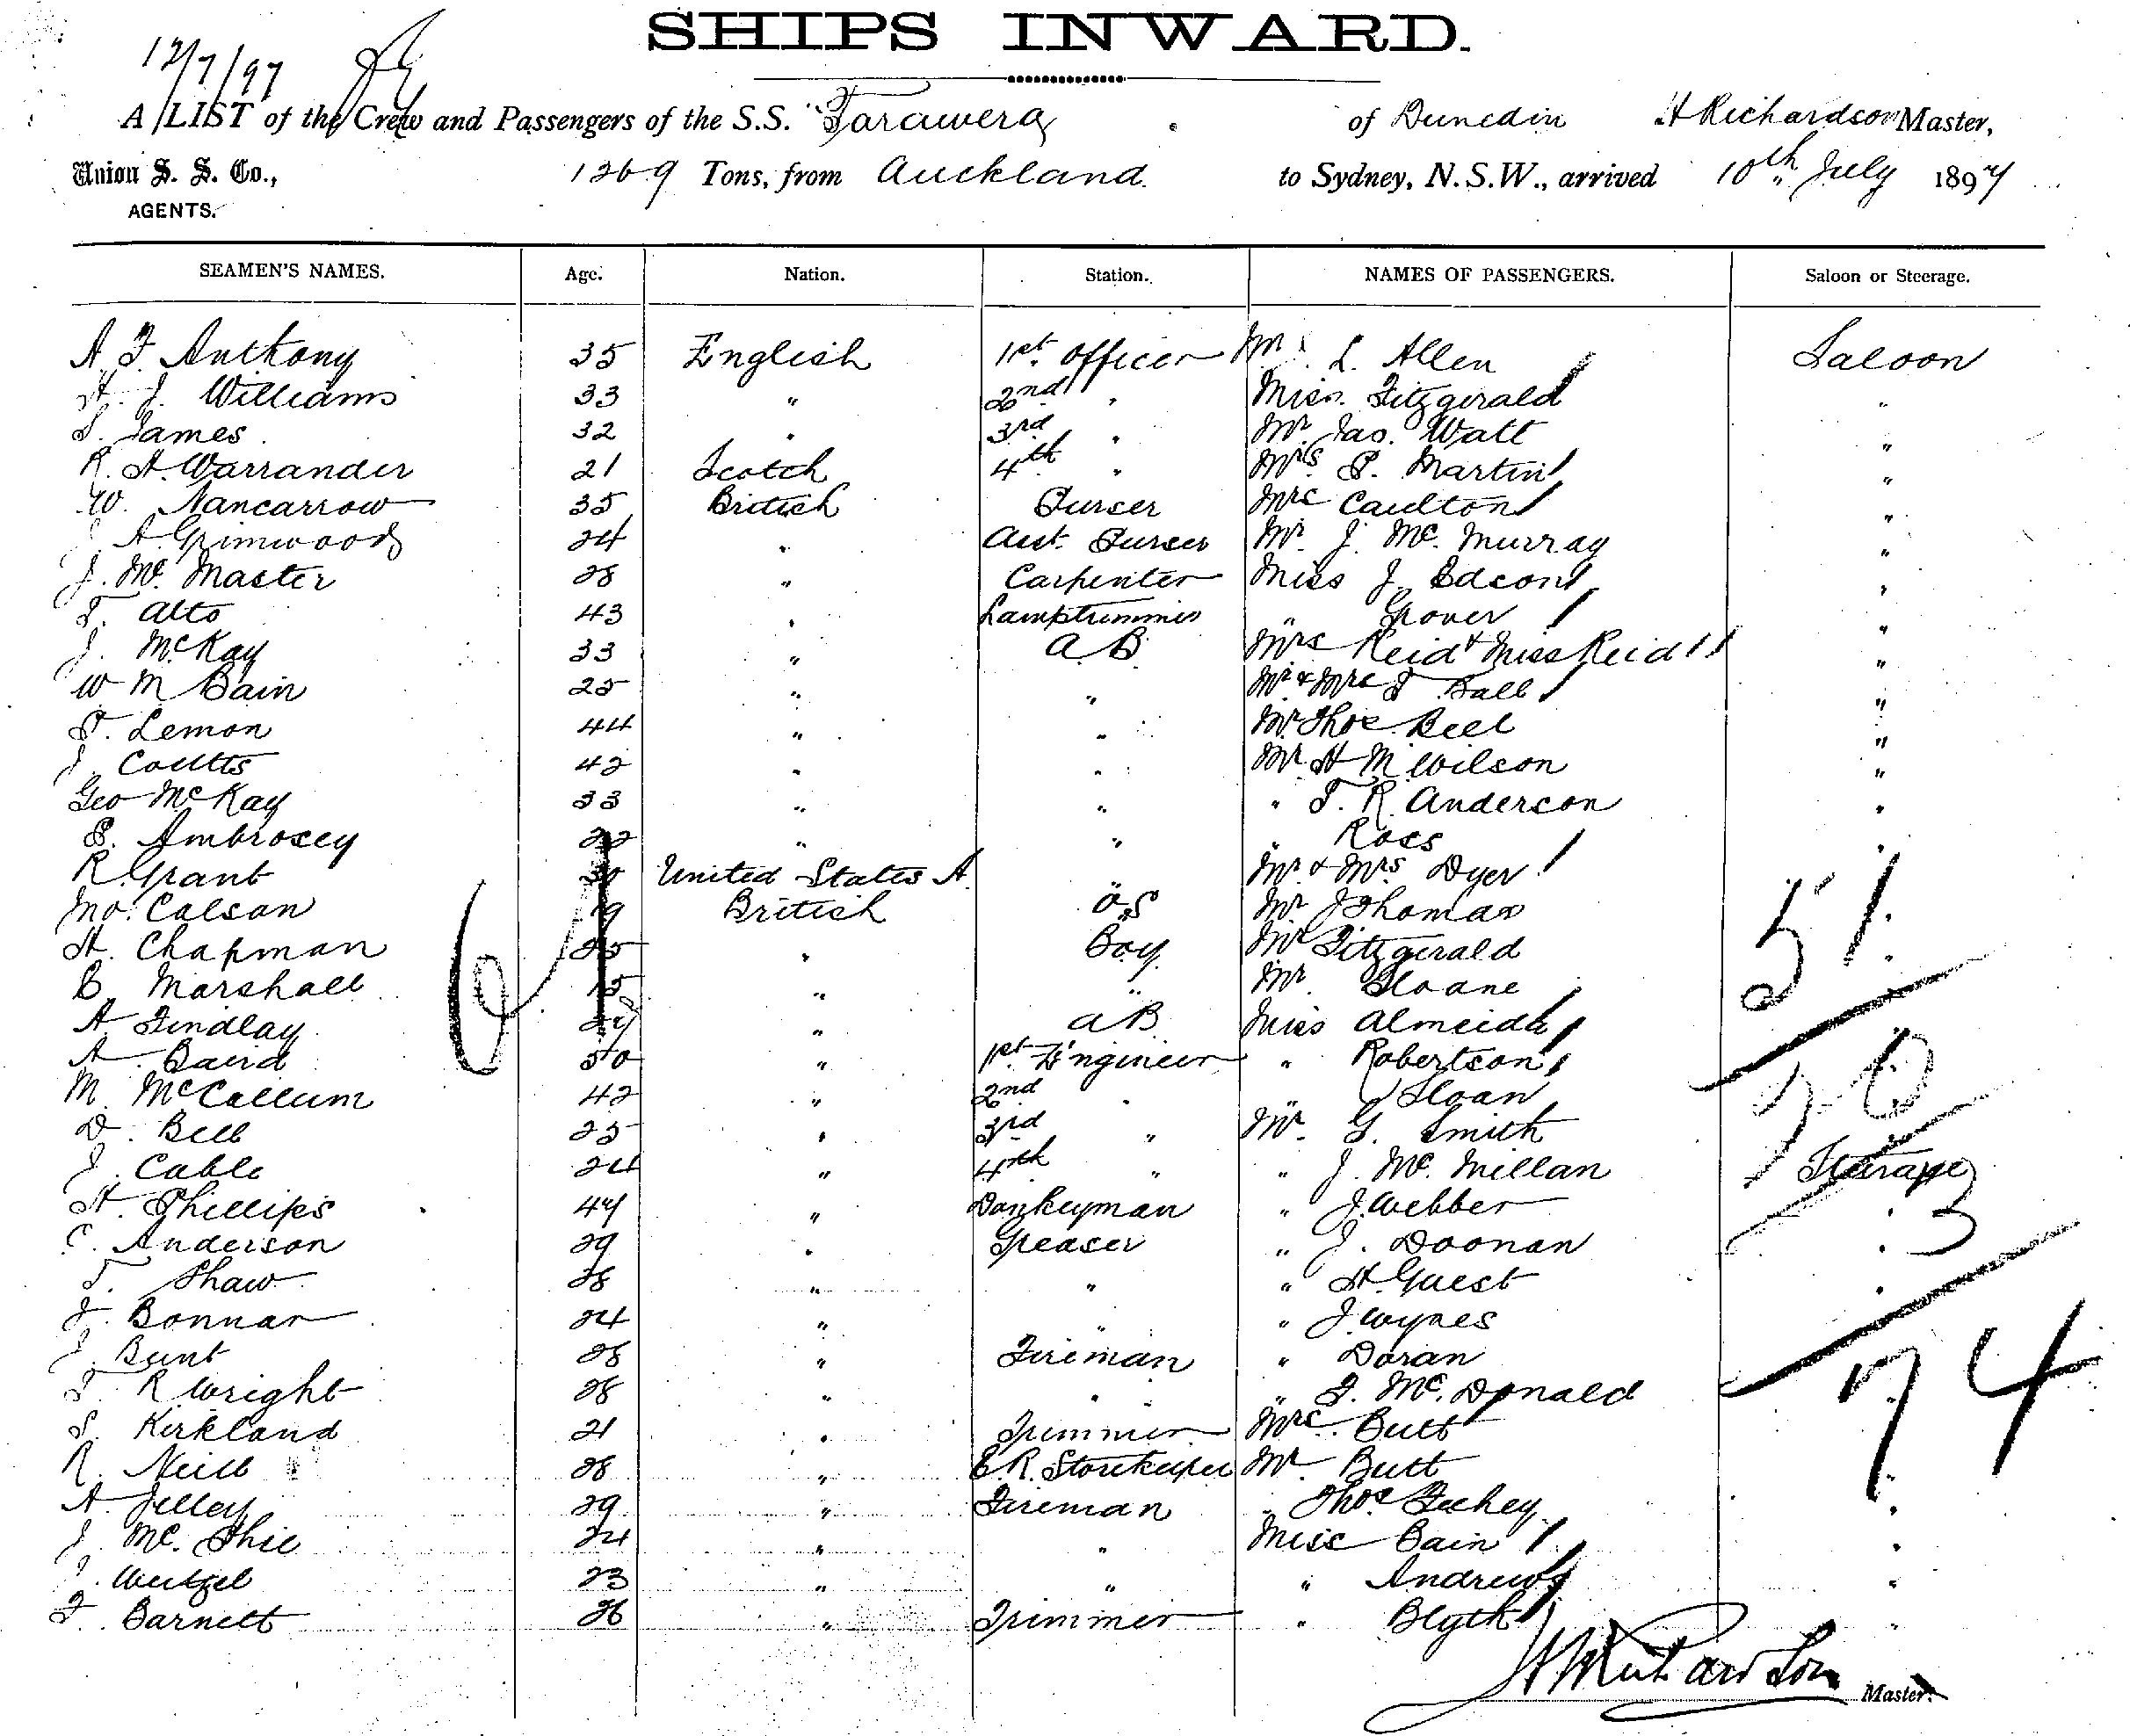 SHIPS INWARD.
12/7/97
A LIST of the Crew and Passengers of the S.S. "Tarawera of Dunedin H Richardson Master,
Union S. S. Co., 1269 Tons, from Auckland. to Sydney, N.S.W., arrived 10th July 1897
AGENTS.
SEAMEN'S NAMES. Age. Nation. Station. NAMES OF PASSENGERS. Saloon or Steerage.
A. F. Anthony 35 English 1st Officer L. Allen Saloon
H. J. Williams 33 " 2nd " Miss Fitzgerald "
S. James 32 " 3rd " Mr. Jas. Watt "
R. H. Warrander 21 Scotch 4th " Mrs S. Martin "
W. Nancarrow 35 British Purser Mrs Caulton "
A Grimwood 24 " Asst. Purser Mr. J. Mc. Murray "
J. Mc. Master 28 " Carpenter Miss J. Edson "
T. Alto 43 " Lamptrimmer " Grover "
J. McKay 33 " A.B. Mrs Reid & Miss Reid "
W M Bain 25 " " Mr & Mrs T Ball "
T. Lemon 44 " " Mr. Thos Bell "
J. Coutts 42 " " Mr. H M Wilson "
Geo McKay 33 " " " T. R. Anderson "
S. Ambrosey 22 " " " Ross "
R. Grant 30 United States A. " Mr. & Mrs Dyer 51
Jno. Calson 19 British O.S Mr J Thomas
H. Chapman 25 " Boy Mr Fitzgerald
B. Marshall 15 " " Mr. Sloane
A. Findlay 27 " AB Miss Almeida
61
A. Baird 50 " 1st Engineer " Robertson 20
M. McCallum 42 " 2nd " " Sloan
D. Bell 25 " 3rd " Mr. G. Smith
J. Cable 24 " 4th " " J. Mc. Millan Steerage
H. Phillips 47 " Donkeyman " J. Webber 3
C. Anderson 29 " Greaser " J. Doonan "
T. Shaw 28 " " " H. Guest "
J. Bonnar 24 " " " J. Wynes
J. Bunt 28 " Fireman " Doran 74
T. R Wright 28 " " " F. Mc. Donald
S. Kirkland 21 " Trimmer Mrs. Butt
R. Neill 28 " E.R. Storekeeper Mr. Butt "
A. Jelley 29 " Fireman " Thos Feehey "
J. Mc. Phie 24 " " Miss Bain "
Weitzel 23 " " " Andrews "
F. Barnett 26 " Trimmer " Blyth "
H Richardson Master.